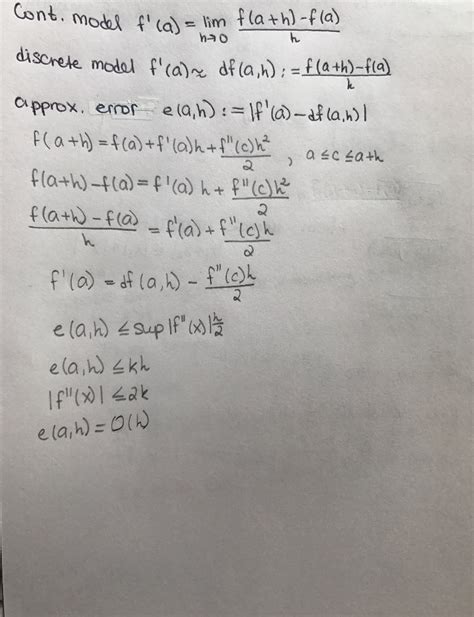 Cont. model f'(a) = lim h→0 f(a+h)-f(a)/h
discrete model f'(a) ≈ df(a,h) := f(a+h)-f(a)/h
approx. error e(a,h) := |f'(a) - df(a,h)|
f(a+h) = f(a) + f'(a)h + f''(c)h²/2 , a ≤ c ≤ a+h
f(a+h) - f(a) = f'(a) h + f''(c)h²/2
f(a+h) - f(a)/h = f'(a) + f''(c)h/2
f'(a) = df(a,h) - f''(c)h/2
e(a,h) ≤ sup|f''(x)|h/2
e(a,h) ≤ kh
|f''(x)| ≤ 2k
e(a,h) = O(h)